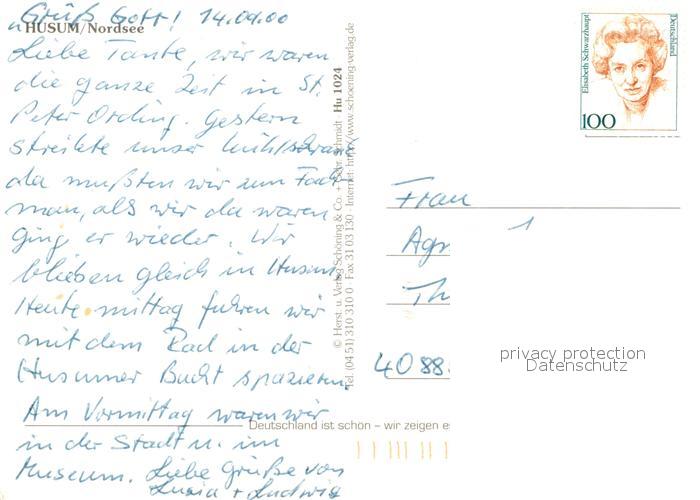 „Grüß Gott! 14.09.00
HUSUM/Nordsee
Liebe Tante, wir waren
die ganze Zeit in St.
Peter Ording. Gestern
streikte unser Kühlschrank
da mußten wir zum Fach-
man, als wir da waren
ging er wieder. Wir
blieben gleich in Husum,
Heute mittag fuhren wir
mit dem Rad in der
Husumer Bucht spazieren.
Am Vormittag waren wir
in der Stadt u. im
Museum. Liebe Grüße von
Lucia + Ludwig
© Herst. u. Verlag Schöning & Co. + Gebr. Schmidt · Hu 1024
Tel. (04 51) 310 310 0 · Fax 31 03 130 · Internet: http://www.schoening-verlag.de
Deutschland ist schön – wir zeigen es
Elisabeth Schwarzhaupt
Deutschland
100
Frau
Agn
Th
40 88
privacy protection
Datenschutz